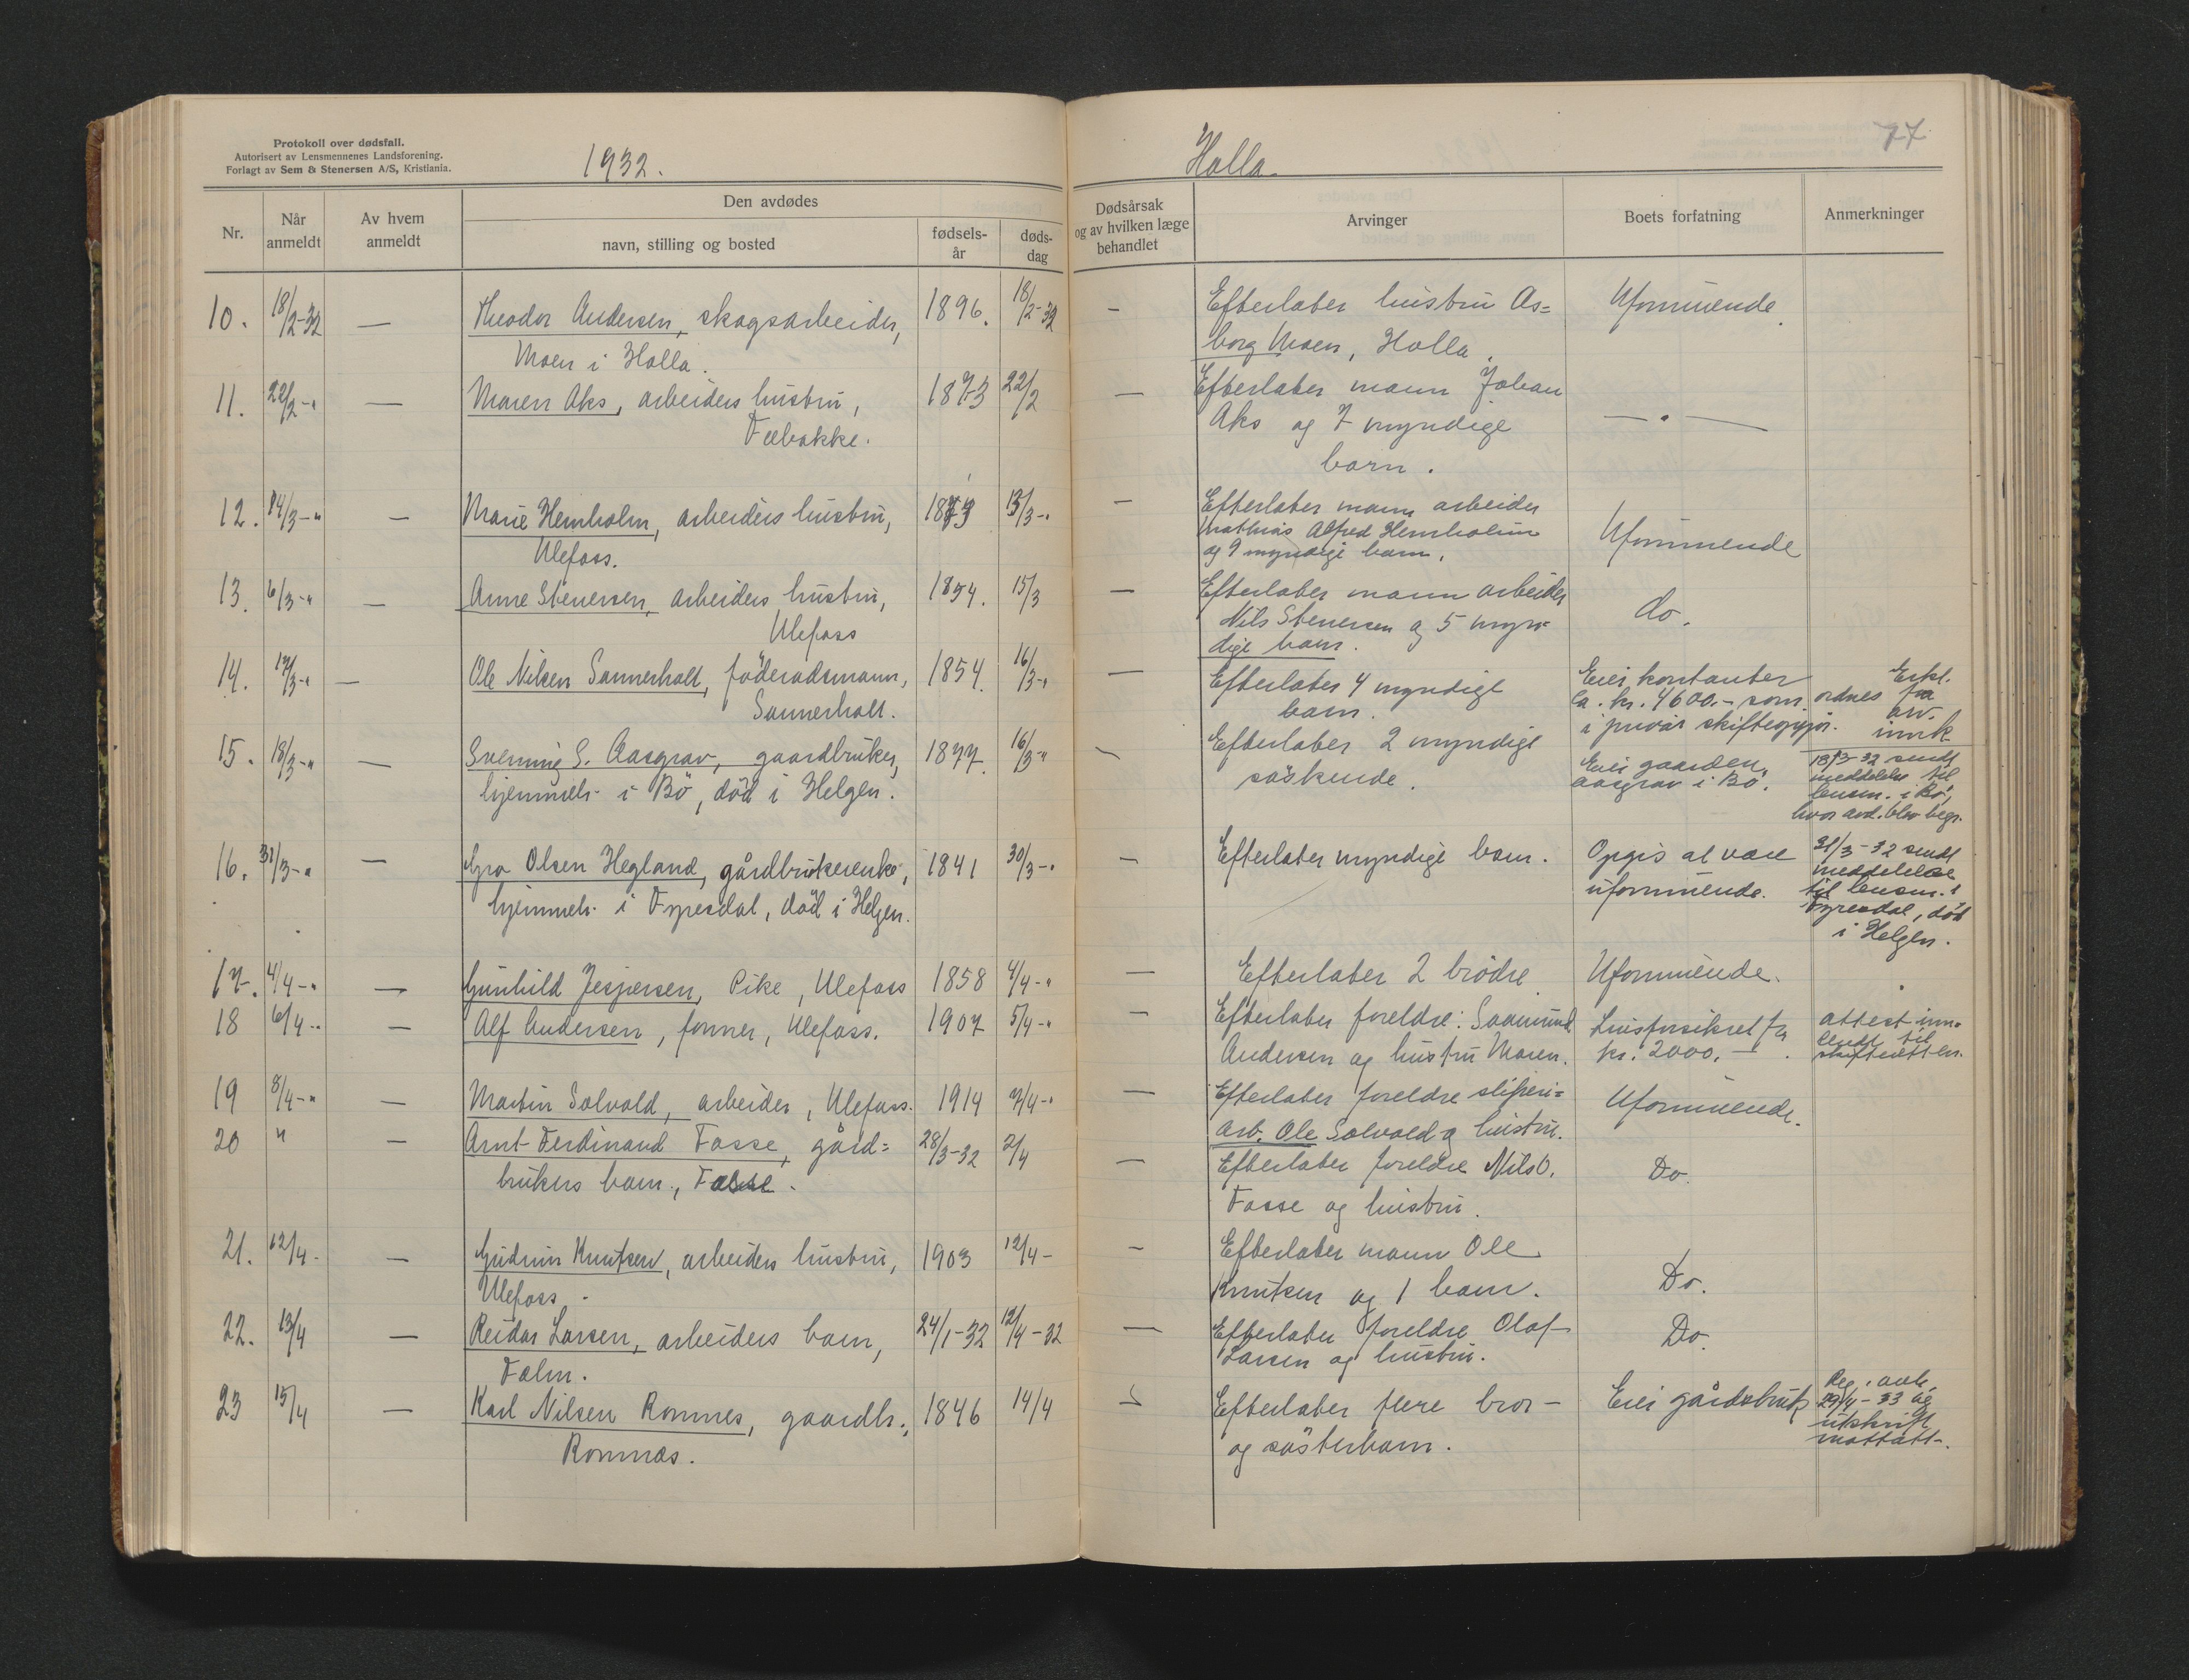 Protokoll over dødsfall.
Autorisert av Lensmennenes Landsforening.
Forlagt av Sem & Stenersen A/S, Kristiania.
1932.
Nr.
Når anmeldt
Av hvem anmeldt
Den avdødes
navn, stilling og bosted
fødsels-år
døds-dag
10. 18/2-32 — Theodor Andersen, skogsarbeider, 1896. 18/2-32
Moen i Holla.
11. 22/2-" — Maren Aks, arbeiders hustru, 1873 22/2
Fæbakke.
12. 14/3-" — Marie Hemholm, arbeiders hustru, 13/3-"
Ulefoss.
13. 6/3-" — Anne Stenersen, arbeiders hustru, 1854. 15/3
Ulefoss
14. 17/3-" — Ole Nilsen Sannerholt, föderadsmann, 1854. 16/3-"
Sannerholt.
15. 18/3-" — Svenning S. Aasgrav, gaardbruker, 1877. 16/3-"
hjemmeh. i Bö, död i Helgen.
16. 31/3-" — Gro Olsen Hegland, gårdbrukerenke, 1841 30/3-"
hjemmeh. i Fyresdal, död i Helgen.
17. 4/4-" — Gunhild Jespersen, Pike, Ulefoss 1858 4/4-"
18 6/4-" — Alf Andersen, former, Ulefoss. 1907 5/4-"
19 8/4-" — Martin Solvold, arbeider, Ulefoss. 1914 7/4-"
20 " — Arnt Ferdinand Fosse, gård= 28/3-32 2/4
brukers barn, Fosse.
21. 12/4- — Gudrun Knutsen, arbeiders hustru, 1903 12/4-
Ulefoss.
22. 13/4 — Reidar Larsen, arbeiders barn, 24/1-32 12/4-32
Folm.
23 15/4 — Karl Nilsen Romnes, gaardbr., 1846 14/4
Romnæs.
Holla.
77
Dødsårsak
og av hvilken læge
behandlet
Arvinger
Boets forfatning
Anmerkninger
— Efterlater hustru As= Uformuende.
borg Moen, Holla.
— Efterlater mann Johan
Aks og 7 myndige — " —
barn.
— Efterlater mann arbeider
Mathias Alfred Hemholm Uformuende
og 9 myndige barn.
— Efterlater mann arbeider
Nils Stenersen og 5 myn= do.
dige barn.
— Efterlater 4 myndige Eier kontanter Erkl.
barn. ca. kr. 4600.- som ordnes fra
i privat skifteopgjör. arv.
innk
Efterlater 2 myndige Eier gaarden 18/3-32 sendt
söskende. Aasgrav i Bö. meddelelse til
lensm. i Bö,
hvor avd. blev begr.
— Efterlater myndige barn. Opgis at være 31/3-32 sendt
uformuende. meddelelse
til lensm. i
Fyresdal, död
i Helgen.
— Efterlater 2 brödre. Uformuende.
— Efterlater foreldre: Saamund Livsforsikret for attest inn-
Andersen og hustru Maren. kr. 2000,— sendt til
skifteretten.
— Efterlater foreldre sliperi= Uformuende.
arb. Ole Solvold og hustru.
— Efterlater foreldre Nils O. Do.
Fosse og hustru.
— Efterlater mann Ole
Knutsen og 1 barn. Do.
— Efterlater foreldre Olaf Do.
Larsen og hustru.
Efterlater flere bror- Eier gårdsbruk
og søsterbarn. 29/4-33 og
utskrift
mottatt.